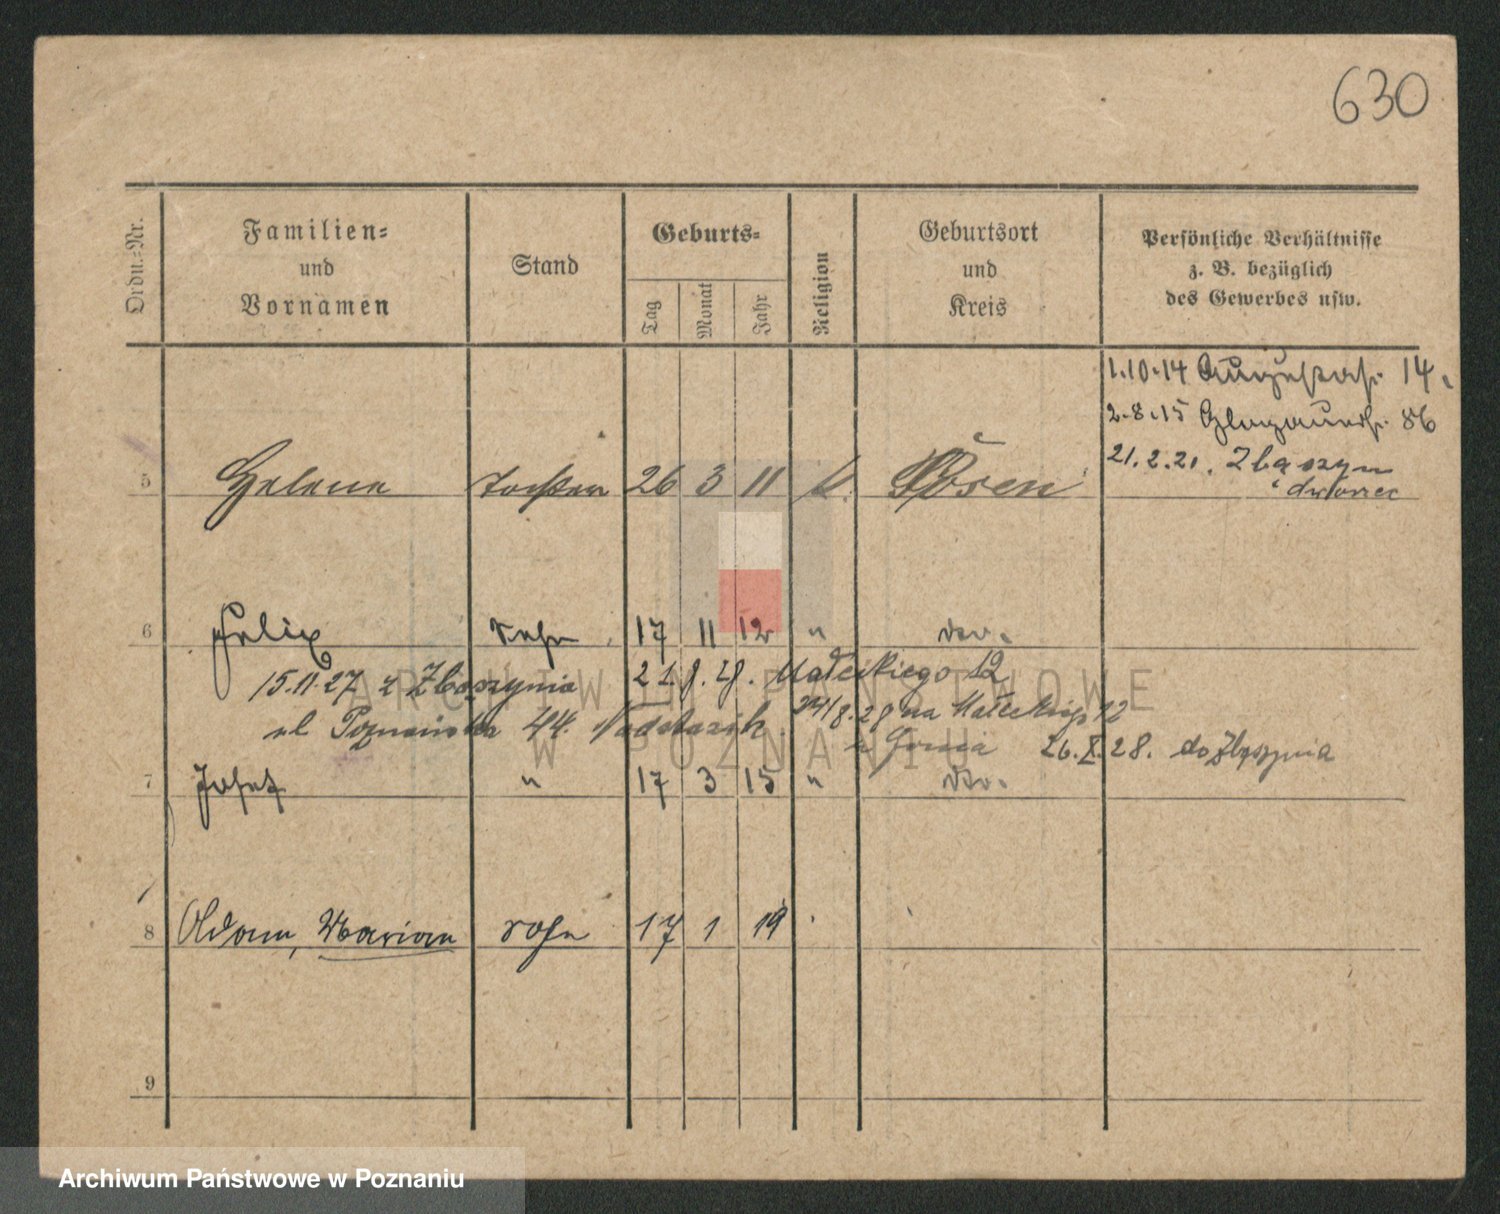 630
Ordn.-Nr.
Familien-
und
Vornamen
Stand
Geburts-
Tag
Monat
Jahr
Religion
Geburtsort
und
Kreis
Persönliche Verhältnisse
z. B. bezüglich
des Gewerbes usw.
1.10.14 Augustastr. 14.
2.8.15 Glogauerstr. 86
21.2.21. Zbąszyn
dworzec
5 Helene Tochter 26 3 11 k. Posen
6 Felix Sohn 17 11 12 " do.
15.11.27 z Zbąszynia 21.8.28. Małeckiego 12
ul Poznańska 44. 24/8.28 na Małeckiego 12
26.X.28. do Zbąszynia
7 Josef " 17 3 15 " do.
8 Adam, Marian Sohn 17 1 19
9
ARCHIWUM PAŃSTWOWE
W POZNANIU
Archiwum Państwowe w Poznaniu